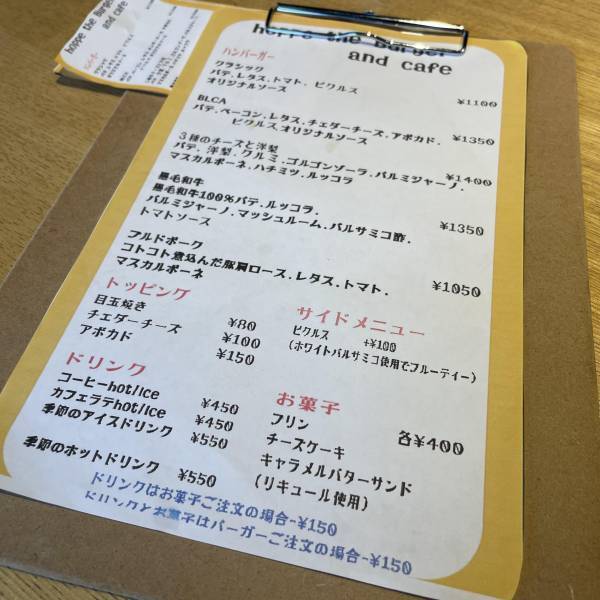 hoppe the Burger
and cafe
ハンバーガー
クラシック
パテ.レタス.トマト. ピクルス
オリジナルソース ¥1100
BLCA
パテ.ベーコン.レタス.チェダーチーズ.アボカド.
ピクルス.オリジナルソース ¥1350
3種のチーズと洋梨
パテ. 洋梨.クルミ.ゴルゴンゾーラ.パルミジャーノ.
マスカルポーネ.ハチミツ.ルッコラ ¥1400
黒毛和牛
黒毛和牛100%パテ.ルッコラ.
パルミジャーノ.マッシュルーム.バルサミコ酢.
トマトソース ¥1350
プルドポーク
コトコト煮込んだ豚肩ロース.レタス.トマト.
マスカルポーネ ¥1050
トッピング
目玉焼き ¥80
チェダーチーズ ¥100
アボカド ¥150
サイドメニュー
ピクルス +¥100
(ホワイトバルサミコ使用でフルーティー)
ドリンク
コーヒーhot/ice ¥450
カフェラテhot/ice ¥450
季節のアイスドリンク ¥550
季節のホットドリンク ¥550
お菓子
プリン
チーズケーキ 各¥400
キャラメルバターサンド
(リキュール使用)
ドリンクはお菓子ご注文の場合-¥150
ドリンクとお菓子はバーガーご注文の場合-¥150
hoppe the Burger
and cafe